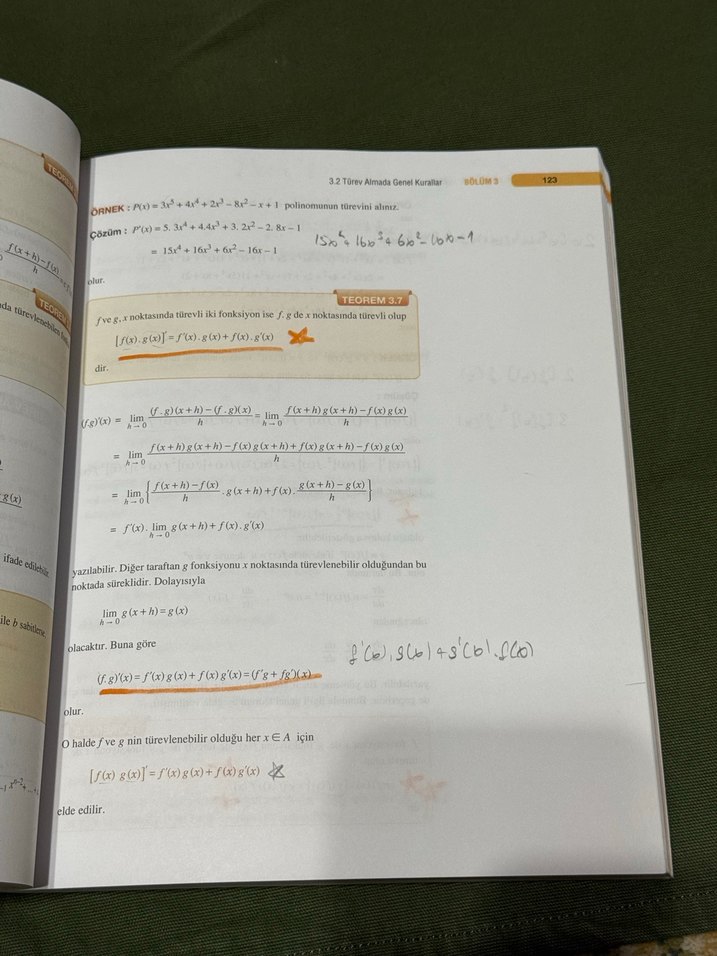 TEOREM
f(x+h)−f(x)
h
TEOREM
da türevlenebilen
g(x)
ifade edilebilir.
ile b sabitlerse,
3.2 Türev Almada Genel Kurallar BÖLÜM 3 123
ÖRNEK : P(x) = 3x⁵ + 4x⁴ + 2x³ − 8x² − x + 1 polinomunun türevini alınız.
Çözüm : P'(x) = 5. 3x⁴ + 4.4x³ + 3. 2x² − 2. 8x − 1
= 15x⁴ + 16x³ + 6x² − 16x − 1
olur.
TEOREM 3.7
f ve g, x noktasında türevli iki fonksiyon ise f. g de x noktasında türevli olup
[f(x) . g(x)]' = f'(x) . g(x) + f(x) . g'(x)
dir.
(f.g)'(x) = lim h→0 (f . g)(x + h) − (f . g)(x) / h = lim h→0 f(x + h) g(x + h) − f(x) g(x) / h
= lim h→0 f(x + h) g(x + h) − f(x) g(x + h) + f(x) g(x + h) − f(x) g(x) / h
= lim h→0 { f(x + h) − f(x) / h . g(x + h) + f(x) . g(x + h) − g(x) / h }
= f'(x) . lim h→0 g(x + h) + f(x) . g'(x)
yazılabilir. Diğer taraftan g fonksiyonu x noktasında türevlenebilir olduğundan bu
noktada süreklidir. Dolayısıyla
lim h→0 g(x + h) = g(x)
olacaktır. Buna göre
f'(x).g(x)+g'(x).f(x)
(f. g)'(x) = f'(x) g(x) + f(x) g'(x) = (f'g + fg')(x)
olur.
O halde f ve g nin türevlenebilir olduğu her x ∈ A için
[f(x) g(x)]' = f'(x) g(x) + f(x) g'(x)
elde edilir.